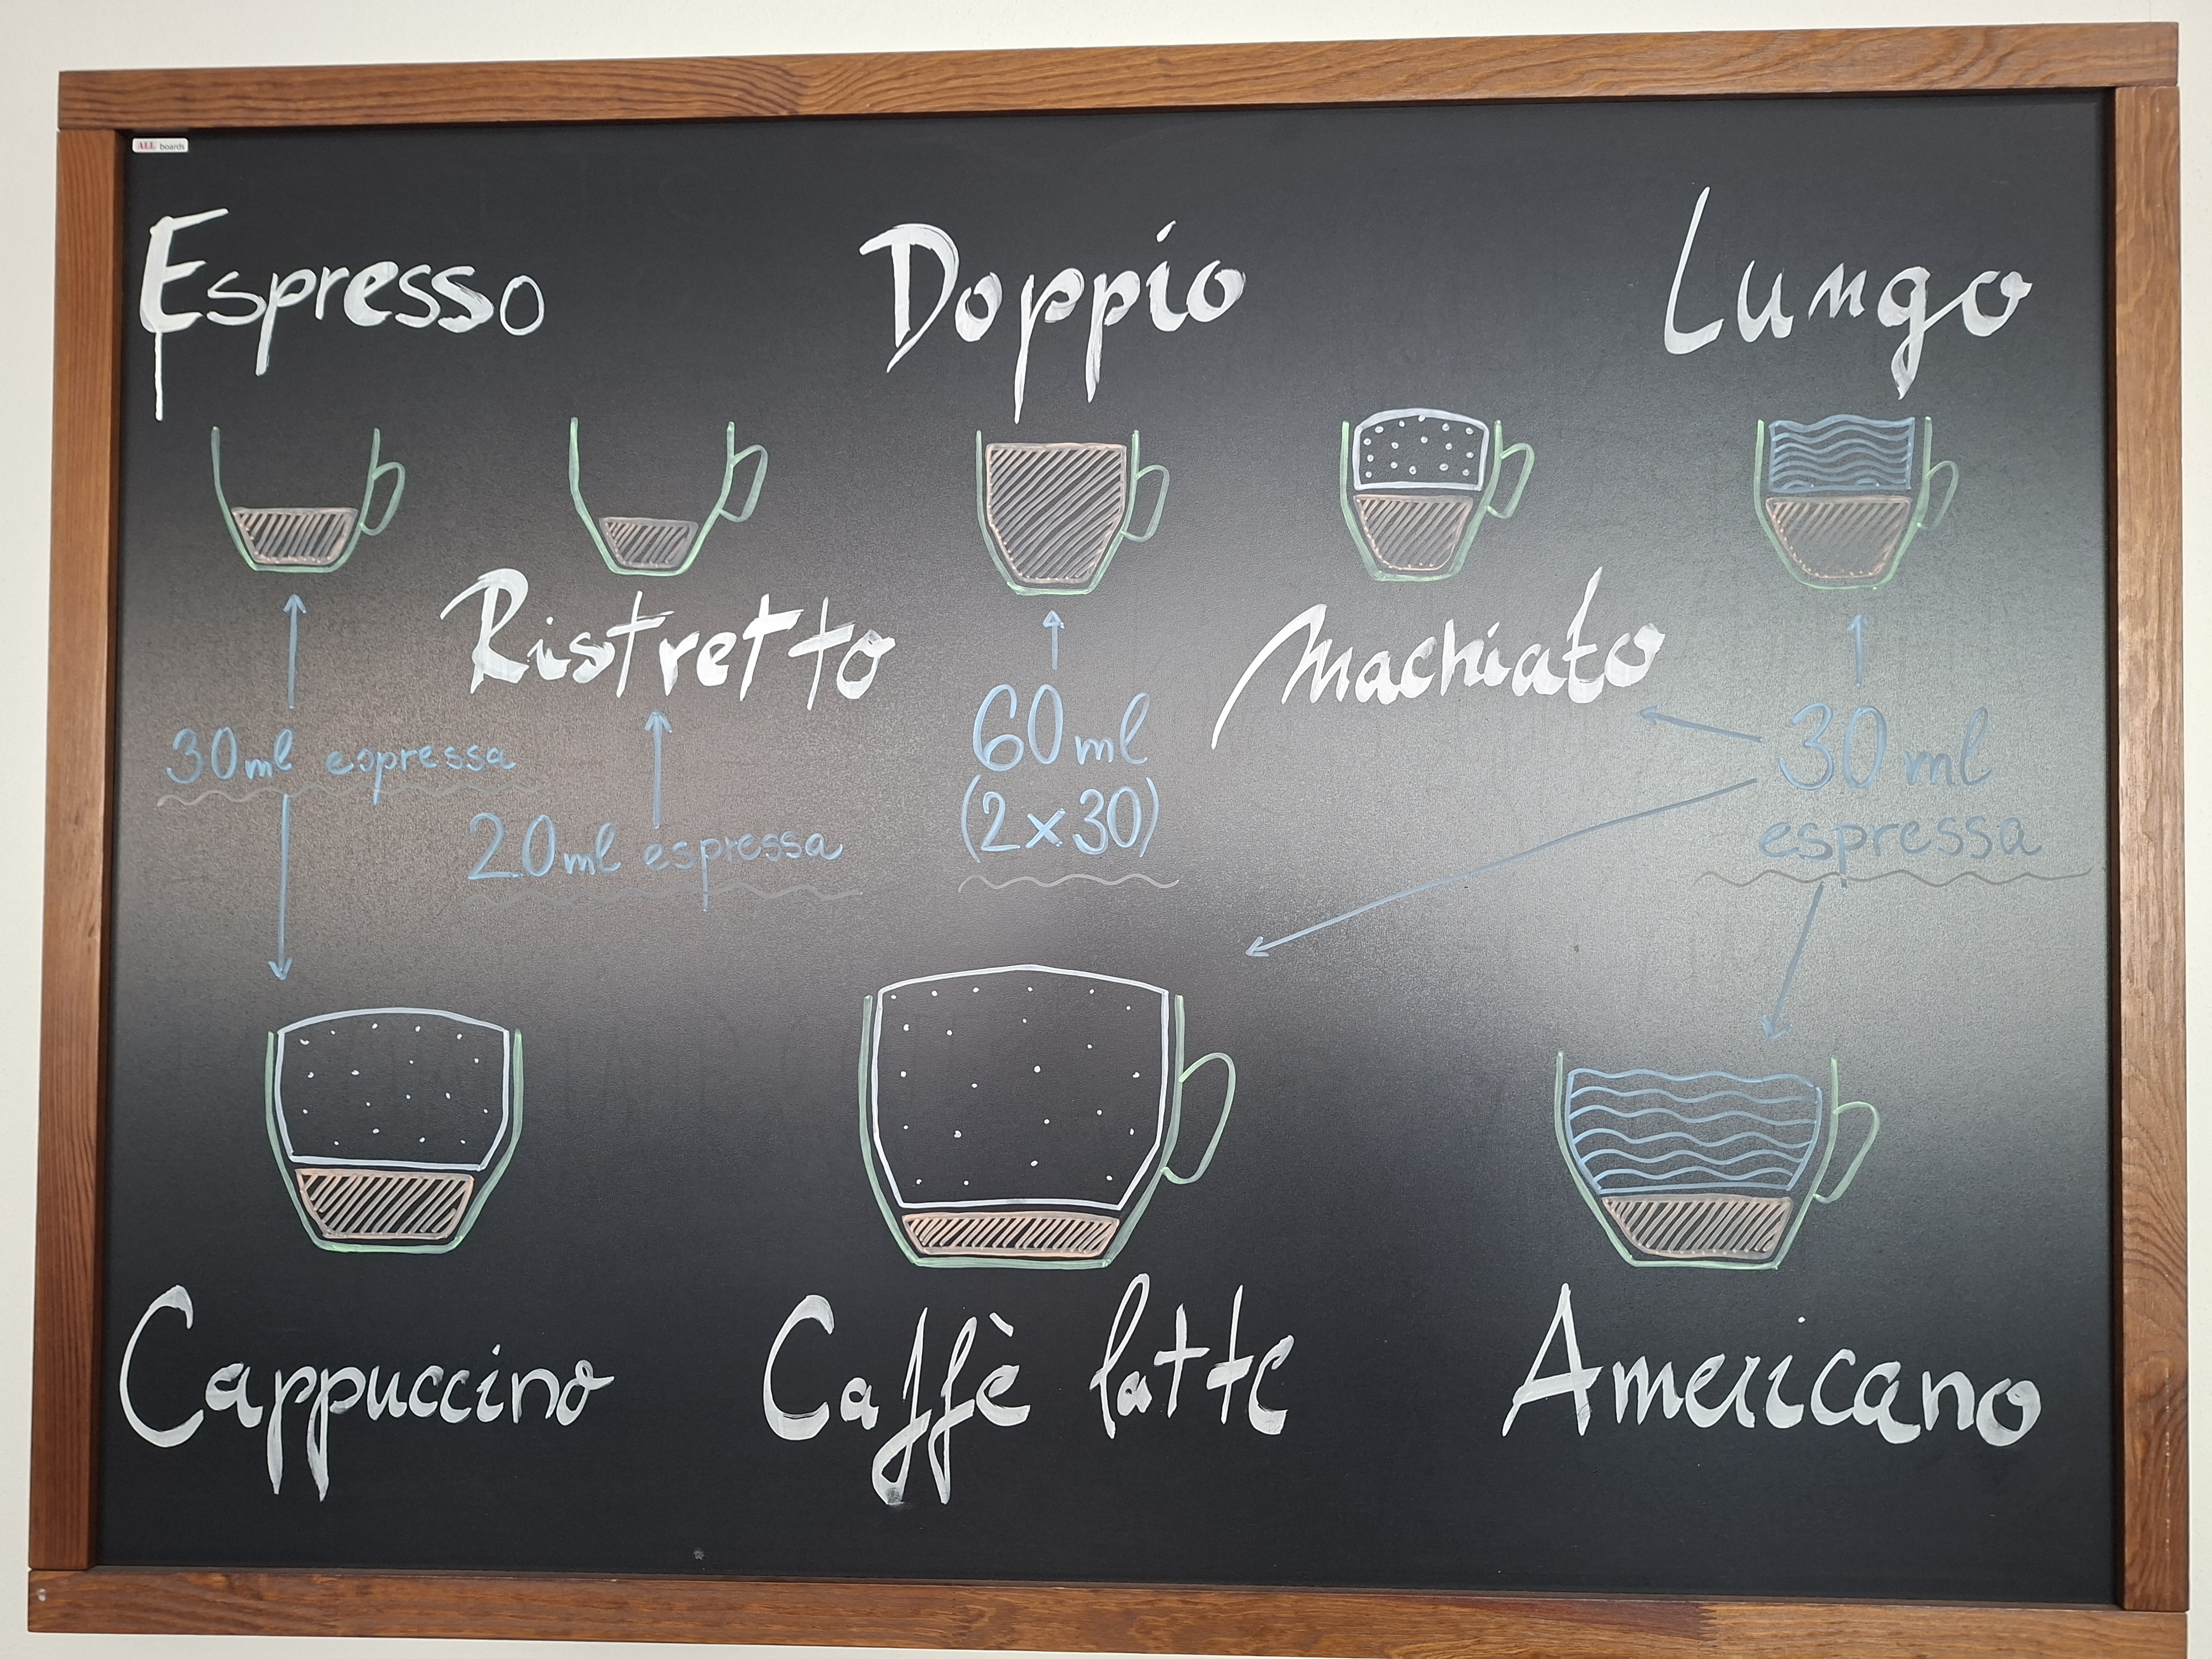 ALL boards
Espresso
Doppio
Lungo
Ristretto
Machiato
30ml espressa
20ml espressa
60ml
(2x30)
30ml
espressa
Cappuccino
Caffè latte
Americano